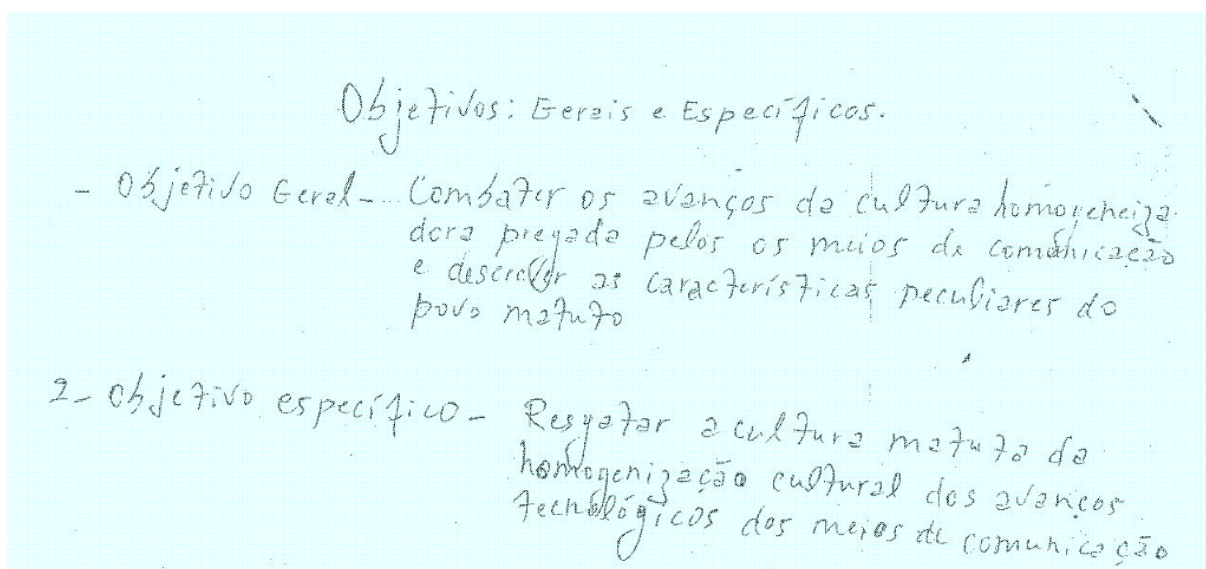 Objetivos: Gerais e Específicos.
- Objetivo Geral - Combater os avanços da cultura homogeneiza-
dora pregada pelos os meios de comunicação
e descrever as características peculiares do
povo matuto
2- Objetivo específico - Resgatar a cultura matuta da
homogenização cultural dos avanços
tecnológicos dos meios de comunicação